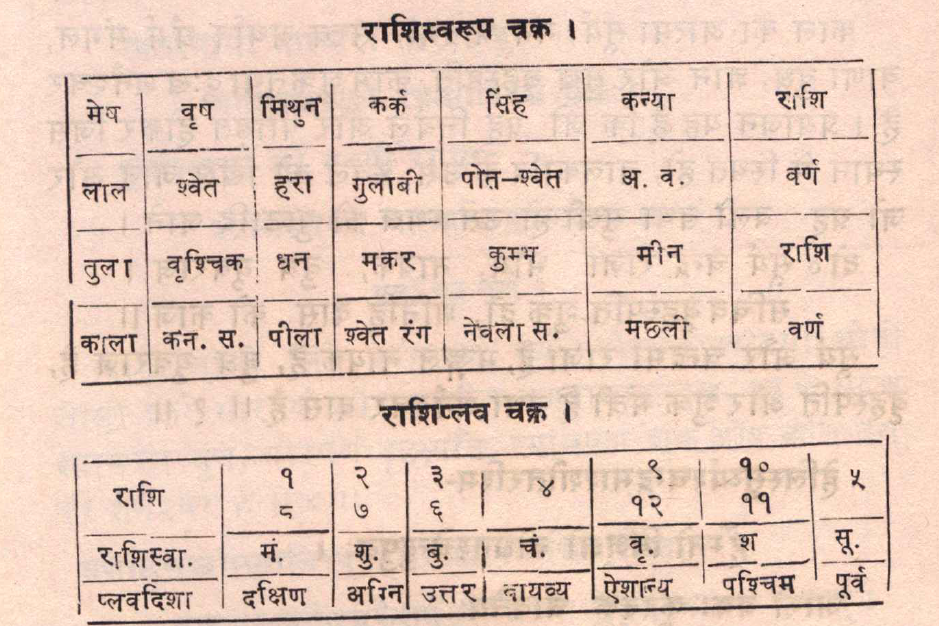 राशिस्वरूप चक्र ।
मेष वृष मिथुन कर्क सिंह कन्या राशि
लाल श्वेत हरा गुलाबी पोत-श्वेत अ. व. वर्ण
तुला वृश्चिक धन मकर कुम्भ मीन राशि
काला कन. स. पीला श्वेत रंग नेवला स. मछली वर्ण
राशिप्लव चक्र ।
राशि १ २ ३ ४ ९ १० ५
८ ७ ६ १२ ११
राशिस्वा. मं. शु. बु. चं. वृ. श सू.
प्लवदिशा दक्षिण अग्नि उत्तर वायव्य ऐशान्य पश्चिम पूर्व